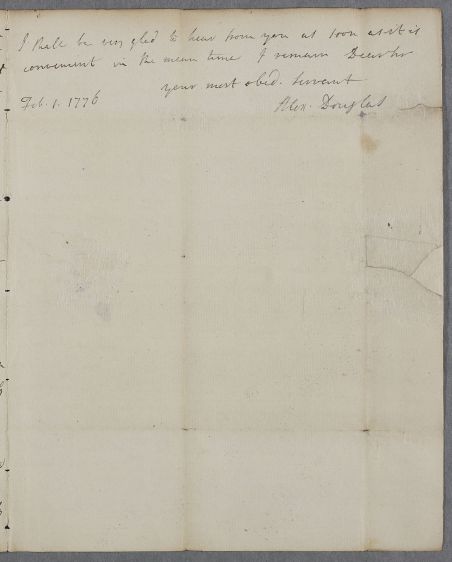 I shall be very glad to hear from you as soon as it is
convenient in the mean time I remain Dear Sir
your most obed. servant
Feb. 1. 1776
Alex. Douglas